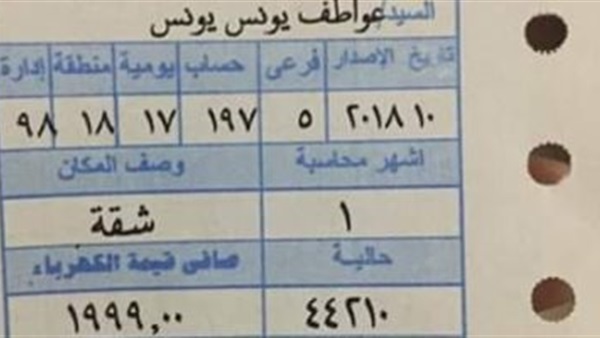 السيد/ عواطف يونس يونس
تاريخ الإصدار فرعى حساب يومية منطقة إدارة
٢٠١٨١٠ ٥ ١٩٧ ١٧ ١٨ ٩٨
اشهر محاسبة وصف المكان
١ شقة
حالية صافى قيمة الكهرباء
٤٤٢١٠ ١٩٩٩,٠٠